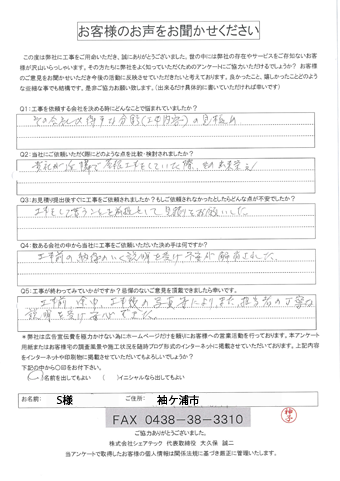 お客様のお声をお聞かせください
この度は弊社に工事をご用命いただき、誠にありがとうございました。世の中には弊社の存在やサービスをご存知ないお客
様が沢山いらっしゃいます。その方たちに弊社をよく知っていただくためのアンケートにご協力いただけるでしょうか? お客様
のご意見をお聞かせいただき今後の活動に反映させていきたいと考えております。良かったこと、嬉しかったことどのよう
な些細な事でも結構です。是非ご協力お願い致します。(出来るだけ具体的に書いていただければ幸いです)
Q1:工事を依頼する会社を決める時にどんなことで悩まれていましたか?
その会社の得手な分野(工事内容)の見極め
Q2:当社にご依頼いただく際にどのような点を比較・検討されましたか?
Q3:お見積り提出後すぐに工事をご依頼されましたか?もしご依頼されなかったとしたらどんな点が不安でしたか?
工事をして貰うことを前提として見積りをお願いした。
Q4:数ある会社の中から当社に工事をご依頼いただいた決め手は何ですか?
工事前の納得のいく説明を受け不安が解消された。
Q5:工事が終わってみていかがですか?忌憚のないご意見を頂戴できましたら幸いです。
工事前、途中、工事後の写真等により、また、担当者の丁寧な
説明を受け安心できた。
*弊社は広告宣伝費を極力かけない為にホームページだけを頼りにお客様への営業活動を行っております。本アンケート
用紙またはお客様宅の調査業務や施工状況を随時ブログ形式のインターネットに掲載させていただいております。上記内容
をインターネットや印刷物に掲載させていただいてもよろしいでしょうか?
下記の中から〇印をお付下さい。
( )名前を出してもよい ( )イニシャルなら出してもよい
お名前: S様 ご住所: 袖ケ浦市
FAX 0438-38-3310
ご協力ありがとうございました。
株式会社シェアテック 代表取締役 大久保 誠二
当アンケートで取得したお客様の個人情報は関係法規に基づき厳正に管理いたします。